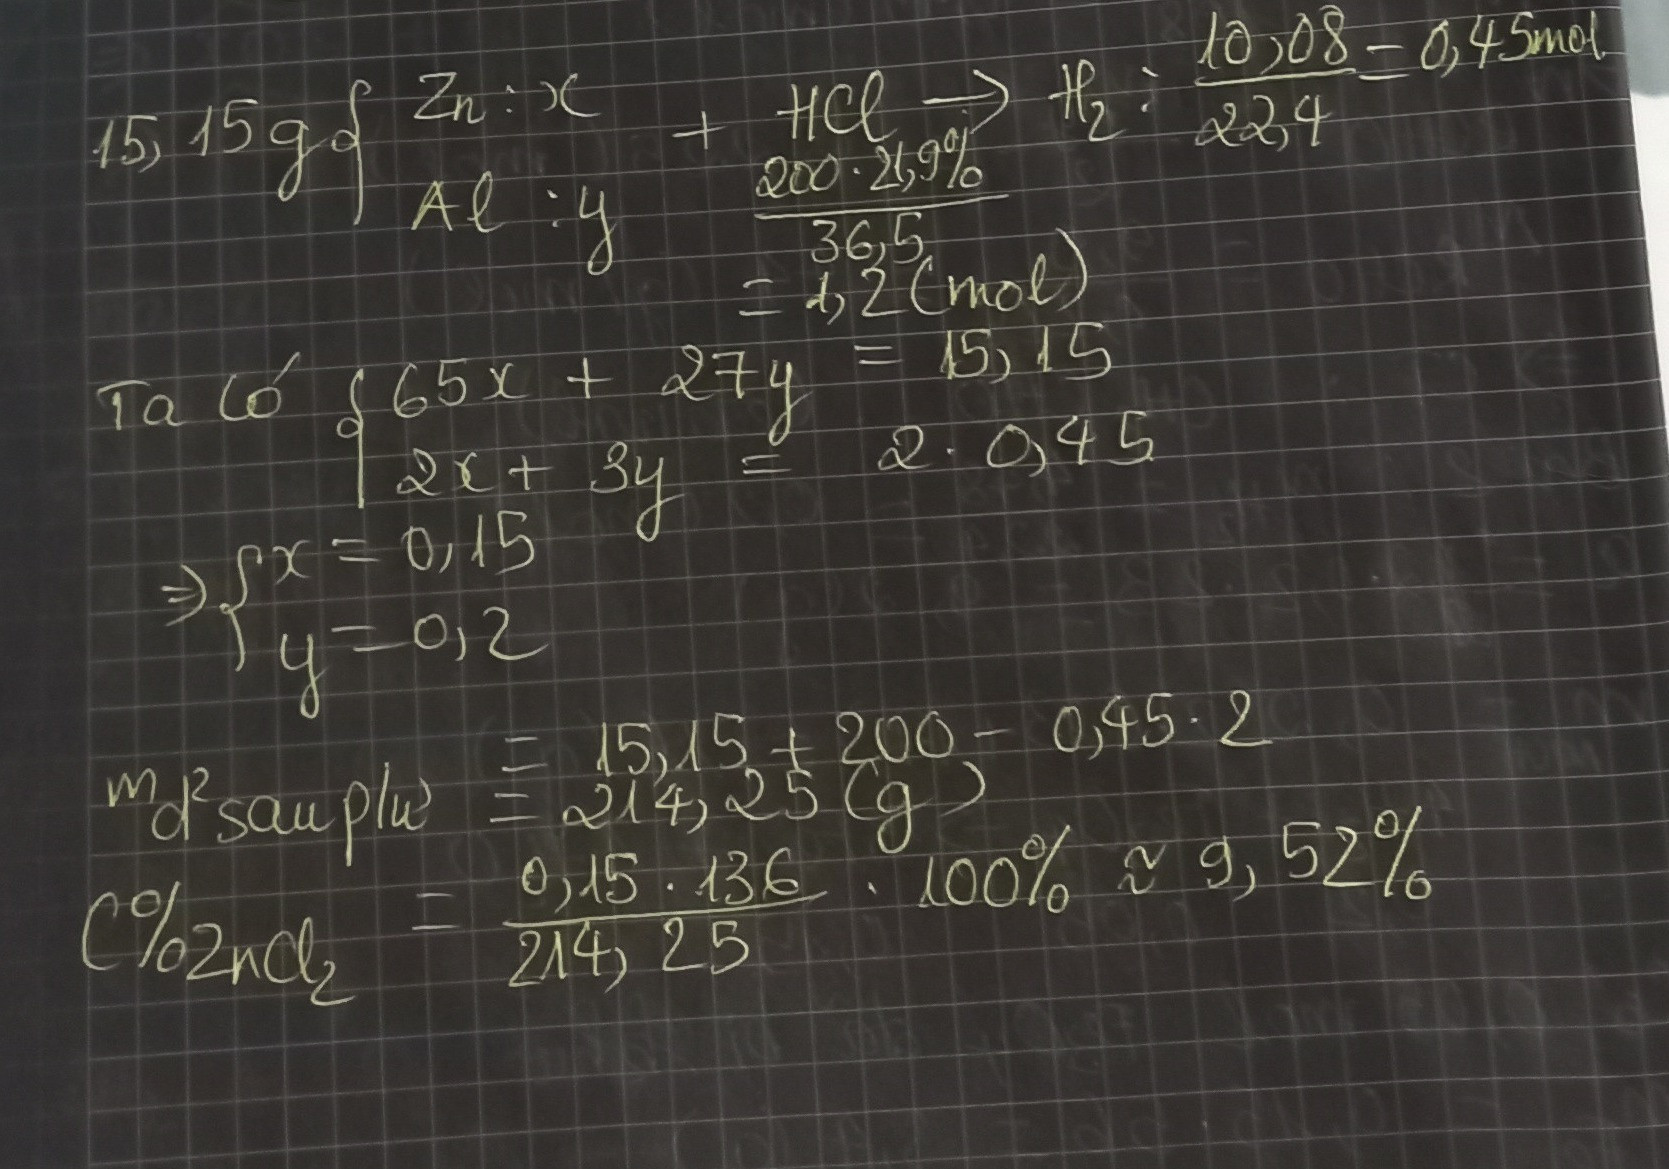 15,15g { Zn : x + HCl → H₂ : 10,08/22,4 = 0,45mol
Al : y 200 · 21,9% / 36,5
= 1,2 (mol)
Ta có { 65x + 27y = 15,15
2x + 3y = 2 · 0,45
⇒ { x = 0,15
y = 0,2
m d² sau phư = 15,15 + 200 - 0,45 · 2
= 214,25 (g)
C% ZnCl₂ = 0,15 · 136 / 214,25 · 100% ≈ 9,52%